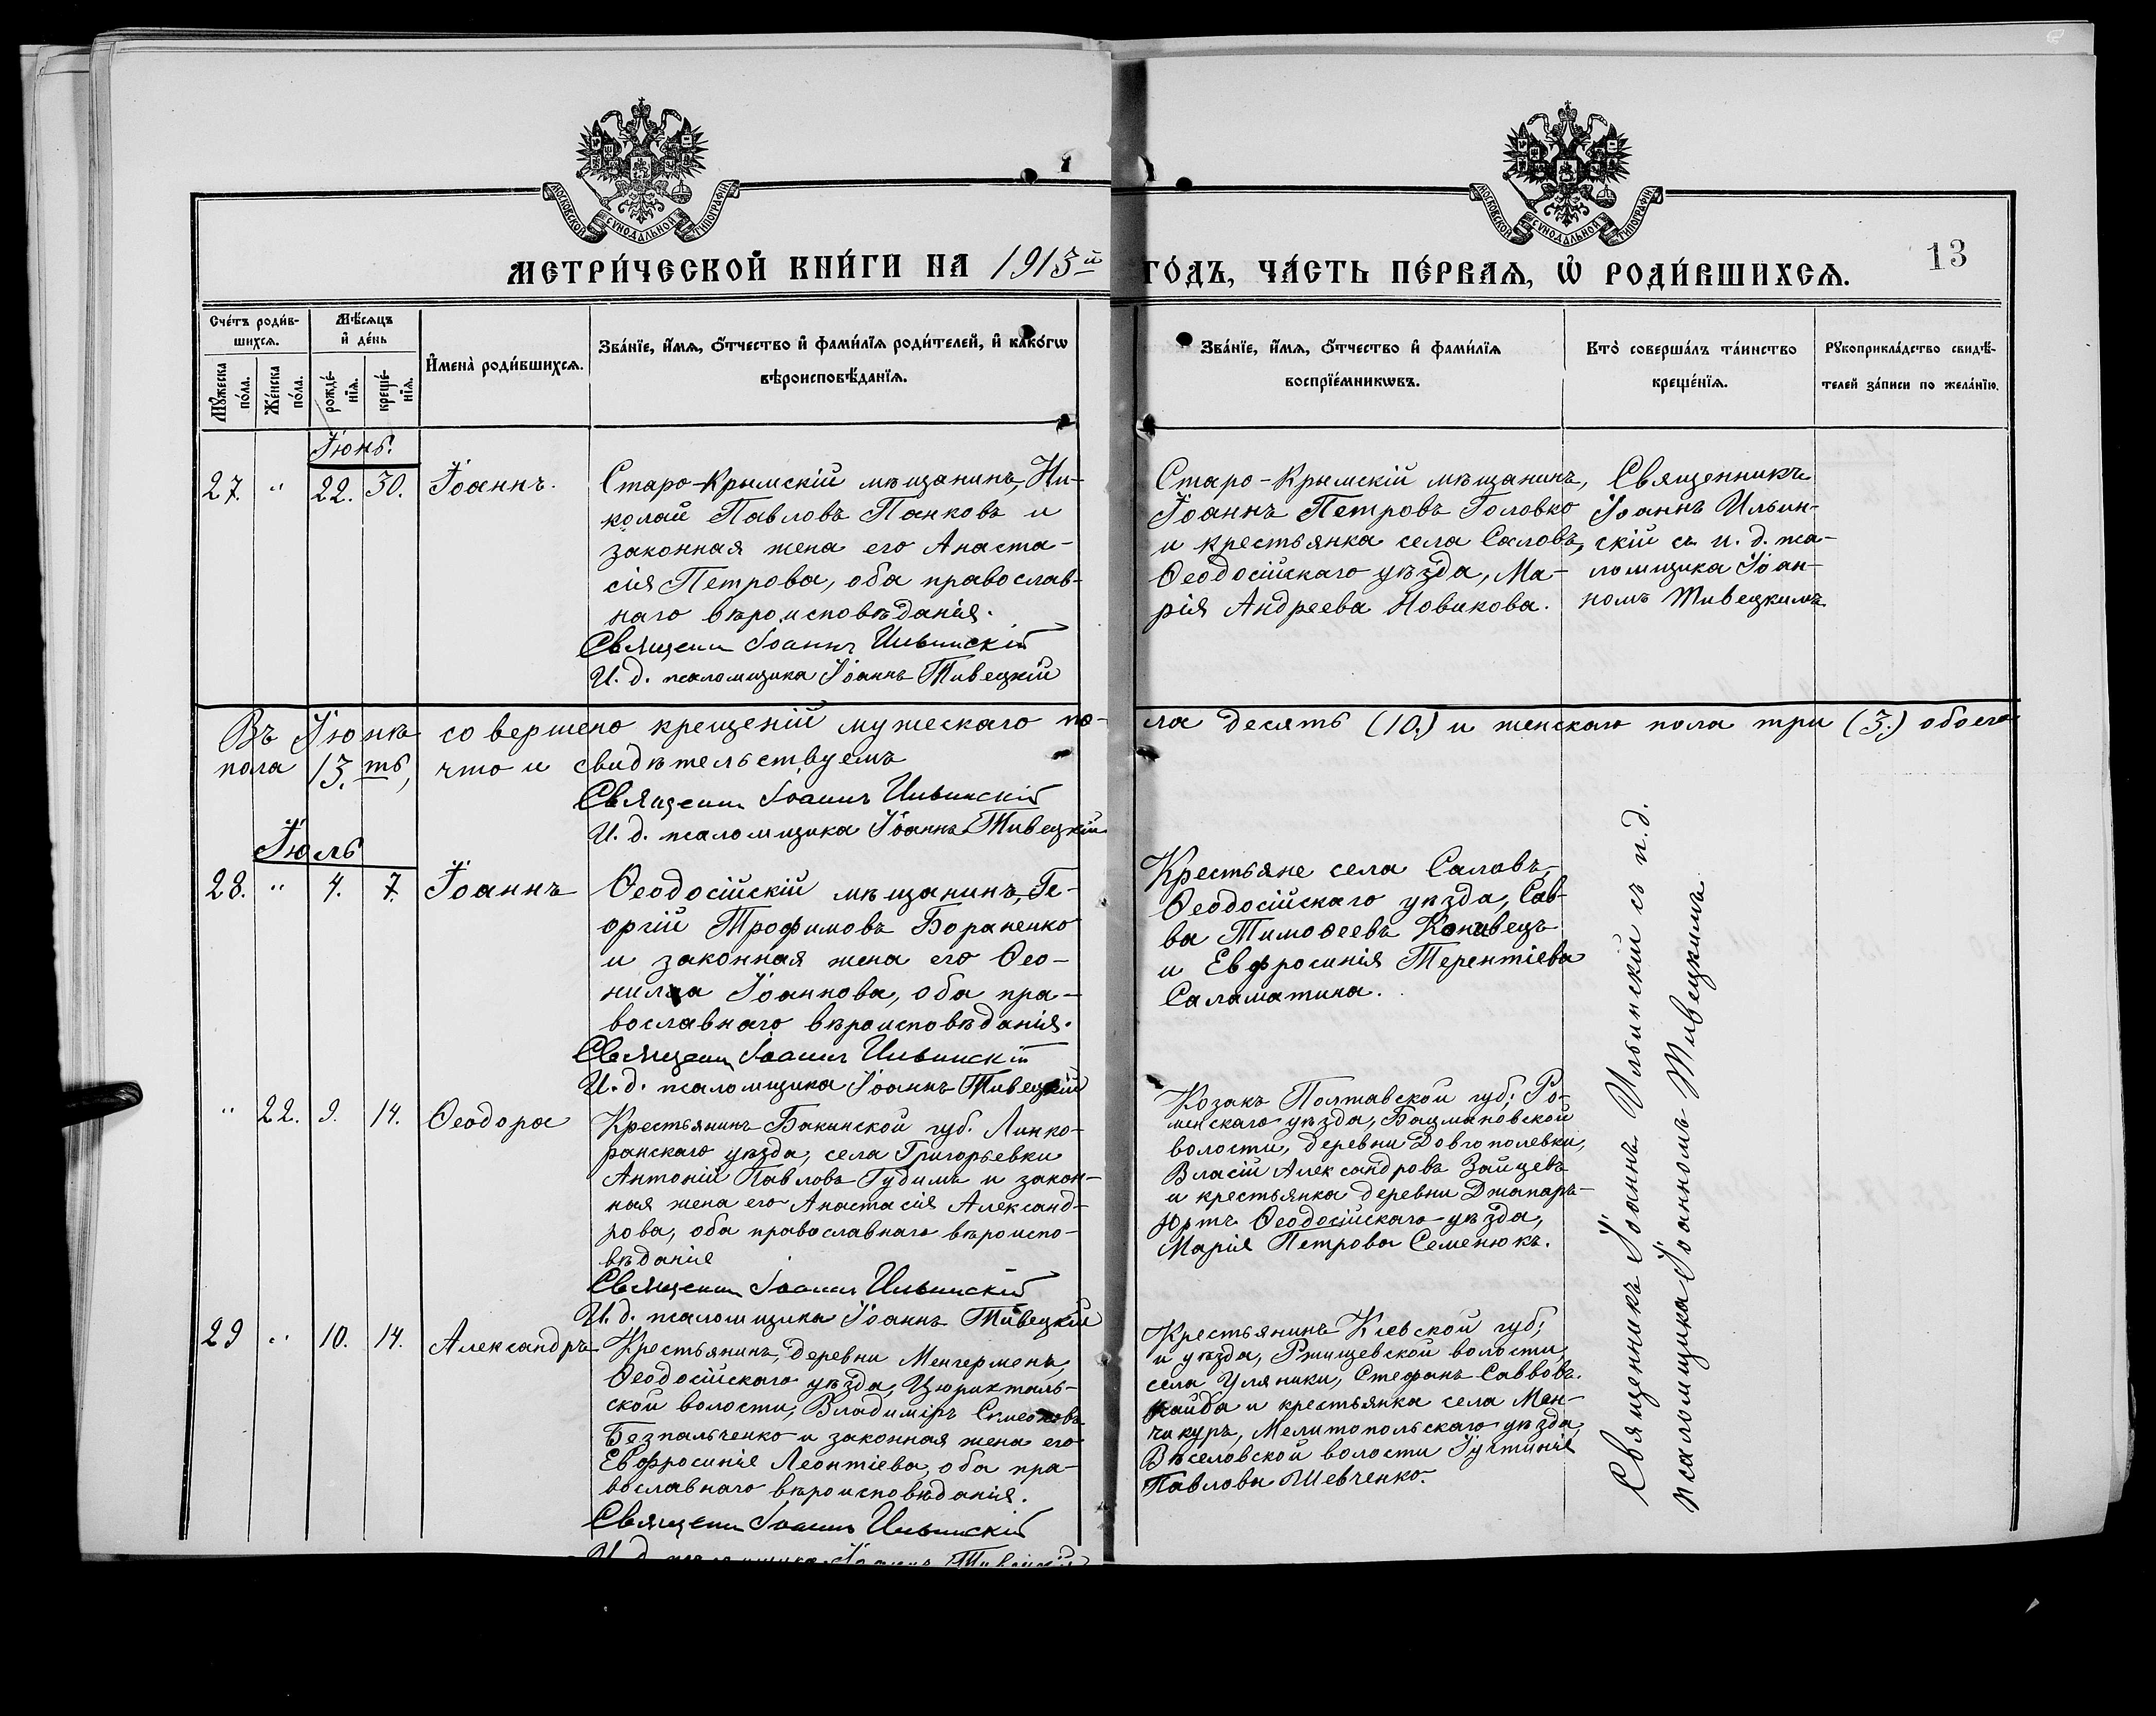 МОСКОВСКОЙ СѴНОДАЛЬНОЙ ТИПОГРАФІИ
МОСКОВСКОЙ СѴНОДАЛЬНОЙ ТИПОГРАФІИ
МЕТРИ́ЧЕСКОЙ КНИ́ГИ НА 1913й ГО́ДЪ, ЧА́СТЬ ПЕ́РВАѦ, Ѿ РОДИ́ВШИХСѦ.
13
Счётъ роди́в-
шихсѧ.
Мѣ́сѧцъ
и҆ де́нь
Мꙋ́жеска по́ла.
Же́нска по́ла.
рожде́-
нїѧ.
креще́-
нїѧ.
И҆мена̀ роди́вшихсѧ.
Зва́нїе, и҆́мѧ, ѻ҆́тчество и҆ фами́лїѧ роди́телей, и҆ како́гѡ
вѣроисповѣ́данїѧ.
Зва́нїе, и҆́мѧ, ѻ҆́тчество и҆ фами́лїѧ
воспрїе́мникѡвъ.
Кто̀ соверша́лъ та́инство
креще́нїѧ.
Рꙋкоприкла́дство свидѣ́-
телей за́писи по жела́нїю.
Іюнь.
27. " 22. 30. Іоаннъ.
Старо-Крымскій мѣщанинъ, Ни-
колай Павловъ Панковъ и
законная жена его Анаста-
сія Петрова, оба православ-
наго вѣроисповѣданія.
Священ Іоаннъ Ильинскій
И. д. псаломщика Іоаннъ Тивецкій
Старо-Крымскій мѣщанинъ,
Іоаннъ Петровъ Головко
и крестьянка села Саловъ,
Ѳеодосійскаго уѣзда, Ма-
рія Андреева Новикова.
Священникъ
Іоаннъ Ильин-
скій съ и. д. пса-
ломщика Іоан-
номъ Тивецкимъ
Въ Іюнѣ совершено крещеній мужескаго по-ла десять (10.) и женскаго пола три (3.) обоего
пола 13.ть, что и свидѣтельствуемъ
Священ Іоаннъ Ильинскій
И. д. псаломщика Іоаннъ Тивецкій
Іюль
28. " 4. 7. Іоаннъ
Ѳеодосійскій мѣщанинъ, Ге-
оргій Трофимовъ Бораненко
и законная жена его Ѳео-
нилла Іоаннова, оба пра-
вославнаго вѣроисповѣданія.
Священ Іоаннъ Ильинскій
И. д. псаломщика Іоаннъ Тивецкій
Крестьяне села Саловъ,
Ѳеодосійскаго уѣзда, Сав-
ва Тимоѳеевъ Конивецъ
и Евфросинія Терентіева
Саламатина.
" 22. 9. 14. Ѳеодора
Крестьянинъ Бакинской губ. Линко-
ранскаго уѣзда, села Григорьевки
Антоній Павловъ Гудимъ и закон-
ная жена его Анастасія Александ-
рова, оба православнаго вѣроиспо-
вѣданія
Священ Іоаннъ Ильинскій
И. д. псаломщика Іоаннъ Тивецкій
Козакъ Полтавской губ. Ро-
менскаго уѣзда, Бацмановской
волости, деревни Довгополевки,
Власій Александровъ Зайцевъ
и крестьянка деревни Джапаръ-
Юртъ Ѳеодосійскаго уѣзда,
Марія Петрова Семенюкъ.
29 " 10. 14. Александръ
Крестьянинъ, деревни Менгерменъ,
Ѳеодосійскаго уѣзда, Цюрихталь-
ской волости, Владиміръ Симеоновъ
Безпальченко и законная жена его
Евфросинія Леонтіева, оба пра-
вославнаго вѣроисповѣданія.
Священ Іоаннъ Ильинскій
И. д. псаломщика Іоаннъ Тивецкій
Крестьянинъ Кіевской губ,
и уѣзда, Ржищевской волости,
села Уляники, Стефанъ Саввовъ
и крестьянка села Ман-
чикуръ, Мелитопольскаго уѣзда,
Веселовской волости Іустинія
Павлова Шевченко.
Священникъ Іоаннъ Ильинскій съ и. д.
псаломщика Іоанномъ Тивецкимъ